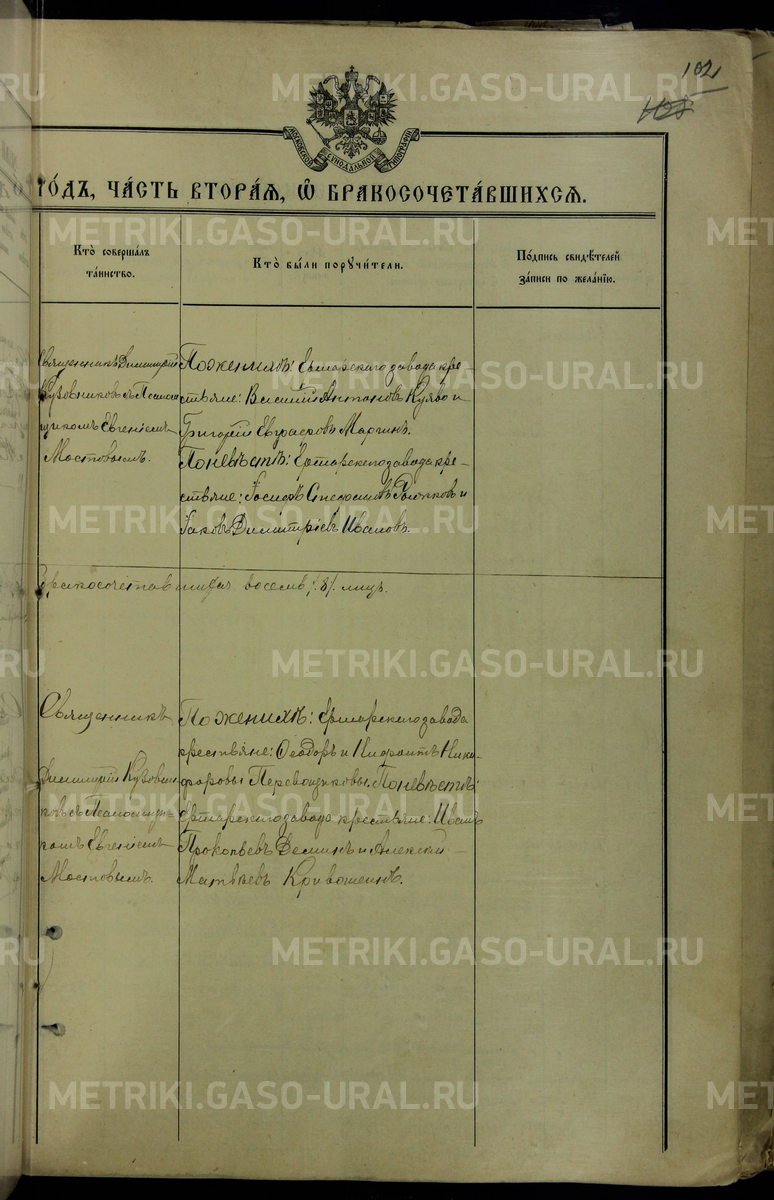 102
МОСКОВСКОЙ СУНОДАЛЬНОЙ ТИПОГРАФІИ
ГО́ДЪ, ЧА́СТЬ ВТОРА́Я, Ѽ БРАКОСОЧЕТА́ВШИХСЯ.
Кто̀ соверша́лъ та́инство.
Кто̀ бы́ли поручи́тели.
По́дпись свидѣ́телей за́писи по жела́нію.
Священникъ Димитрій
Кузовниковъ съ Псалом
щикомъ Евгеніемъ
Мостовымъ.
По женихѣ: Ертарскаго завода кре-
стьяне: Василій Антоновъ и
Григорій Мартинъ.
По невѣстѣ: Ертарскаго завода кре-
стьяне: Іосифъ и
Іаковъ Димитріевъ Ивановъ.
бракосочетавшихся восемь /8/ лицъ.
Священникъ
Димитрій Кузовни
ковъ съ Псаломщи-
комъ Евгеніемъ
Мостовымъ.
По женихѣ: Ертарскаго завода
крестьяне: Ѳеодоръ и Ники-
форовы Перевощиковы. По невѣстѣ:
Ертарскаго завода крестьяне: Иванъ
Прокопьевъ Деминъ и Алексѣй
Матвѣевъ Кривошеинъ.
METRIKI.GASO-URAL.RU